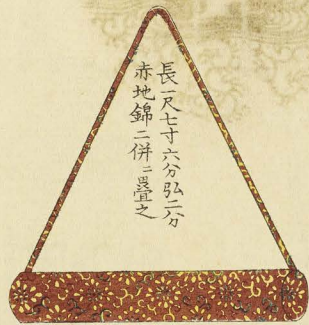 長一尺七寸六分弘二分
赤地錦二併ニ畳之